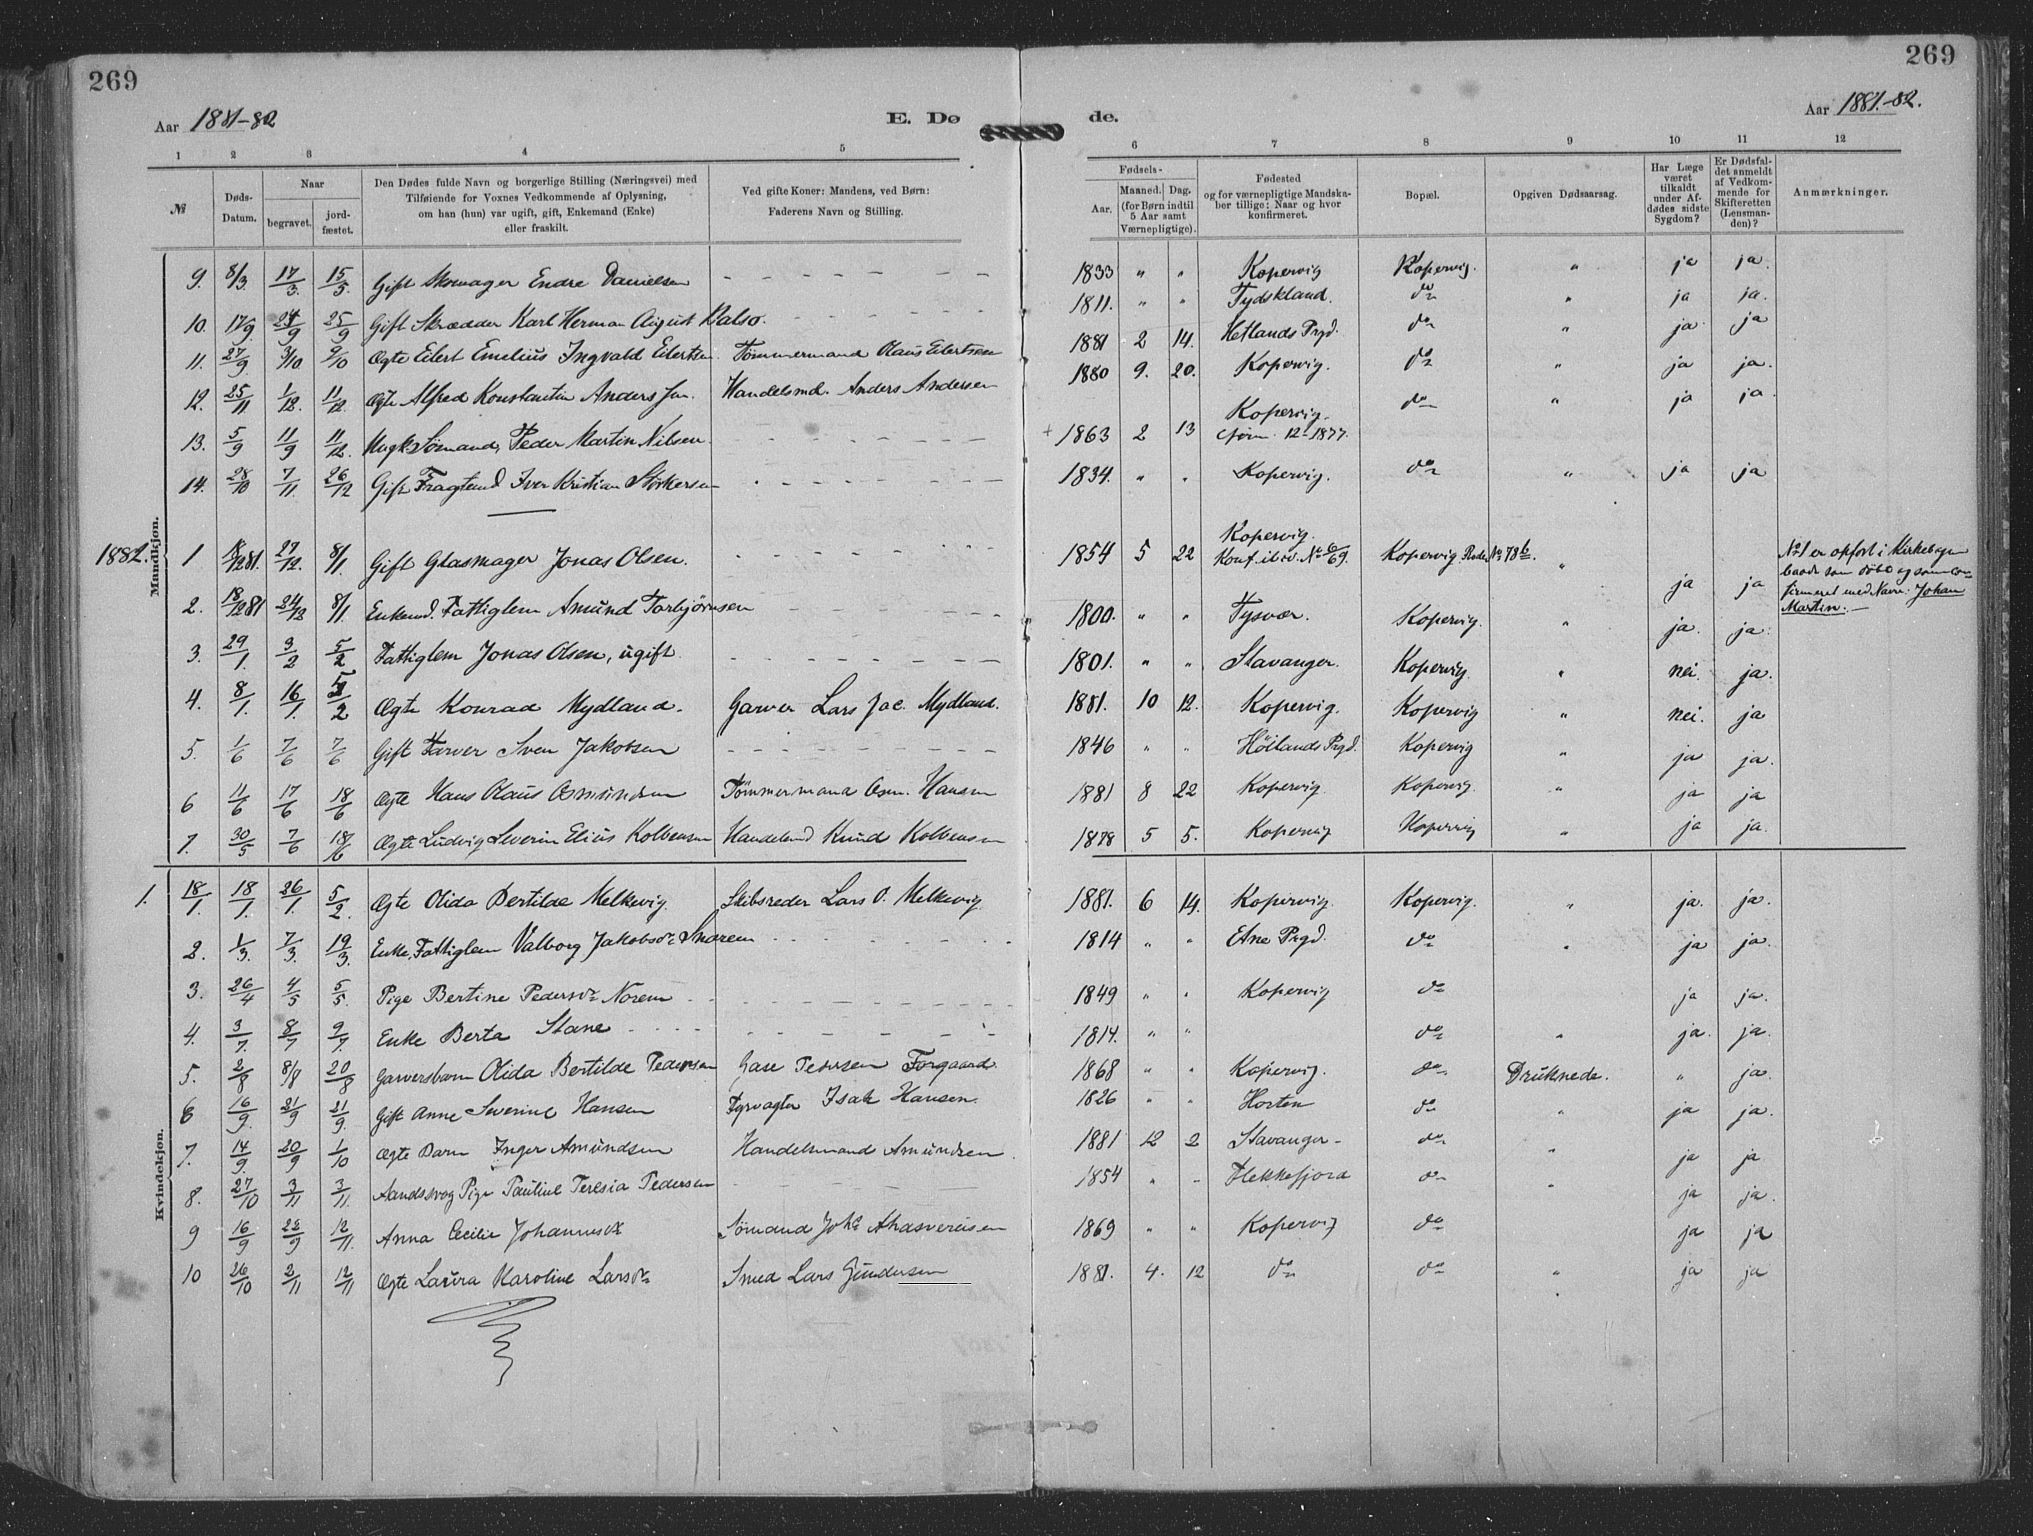 269
269
Aar 1881-82
E. Dø
de.
Aar 1881.-82.
1 2 3 4 5 6 7 8 9 10 11 12
№
Døds-
Datum.
Naar
begravet.
jord-
fæstet.
Den Dødes fulde Navn og borgerlige Stilling (Næringsvei) med
Tilføiende for Voxnes Vedkommende af Oplysning,
om han (hun) var ugift, gift, Enkemand (Enke)
eller fraskilt.
Ved gifte Koner: Mandens, ved Børn:
Faderens Navn og Stilling.
Fødsels-
Aar.
Maaned. Dag.
(for Børn indtil
5 Aar samt
Værnepligtige).
Fødested
og for værnepligtige Mandska-
ber tillige: Naar og hvor
konfirmeret.
Bopæl.
Opgiven Dødsaarsag.
Har Læge
været
tilkaldt
under Af-
dødes sidste
Sygdom?
Er Dødsfal-
det anmeldt
af Vedkom-
mende for
Skifteretten
(Lensman-
den)?
Anmærkninger.
Mandkjøn.
9. 8/3. 17/3. 15/5. Gift Skomager Endre Danielsen - - - - - - - 1833 " " Kopervig Kopervig. " ja ja.
10. 17/9. 24/9 25/9 Gift Skrædder Karl Herman August 1811. " " Tydskland. do " ja ja.
11. 27/9 3/10 9/10 Ægte Eilert Emelius Ingvald Eilertsen Tømmermand Olaus Eilertsen 1881 2 14. Hetlands Prgd. do " ja ja
12. 25/11 1/12. 11/12. Ægte Alfred Konstantin Anders Handelsmd. Anders Andersen 1880 9. 20. Kopervig. do " ja ja.
13. 5/9 11/9 11/12. Sømand, Peder Martin Nilsen - - - - + 1863 2 13 Kopervig. 12-1877. do " ja ja.
14. 28/10 7/11. 26/12 Gift Iver Kristian Størkersen - - - - 1834. " " Kopervig. do " ja ja
1882. 1 18/12 81. 27/12. 8/1. Gift Glasmager Jonas Olsen. - - - - 1854 5 22 Kopervig. Konf. ibid. No 6/69. Kopervig " ja ja No 1 er opført i Kirkebogen
baade som døbt og som con-
firmeret med Navn: Johan
Martin. -
2. 18/12 81 24/12 8/1 Enkemd. Fattiglem Amund Torbjørnsen - - - - 1800. " " Tysvær. Kopervig. " ja. ja.
3. 29/1. 3/2 5/2 Fattiglem Jonas Olsen, ugift. - - - - 1801. " " Stavanger. Kopervig " nei ja.
4. 8/1. 16/1. 5/2 Ægte Konrad Mydland. Garver Lars Jac. Mydland. 1881. 10 12. Kopervig. Kopervig " nei. ja
5. 1/6 7/6 7/6 Gift Farver Sven Jakobsen - - - - 1846 " " Höilands Prgd. Kopervig " ja ja.
6 11/6 17/6 18/6 Ægte Hans Olaus Osmundsen Tømmermand Osm. Hansen 1881 8 22 Kopervig. Kopervig. " ja ja
7. 30/5 7/6 18/6 Ægte Ludvig Severin Elius Kolbensen Handelsmd Knud Kolbensen 1878 5 5. Kopervig Kopervig " ja ja.
Kvindekjøn.
1. 18/1. 18/1. 26/1. 5/2. Ægte Olida Bertilde Melkevig. Skibsreder Lars O. Melkevig 1881. 6 14. Kopervig. Kopervig. " ja. ja.
2. 1/3. 7/3. 19/3. Enke, Fattiglem Valborg Jakobsdr Snorem - - - - 1814 " " Etne Prgd. do " ja ja.
3. 26/4 4/5 5/5. Pige Bertine Pedersdr Norem - - - - 1849 " " Kopervig do ja ja.
4. 3/7. 8/7 9/7. Enke Berta Stane - - - - 1814. " " do " ja. ja.
5. 2/8 8/8 20/8 Garversbarn Olida Bertilde Pedersen Pedersen Forgaard. 1868 " " Kopervig. do Druknede. " ja.
6 16/9. 21/9 21/9. Gift Anne Severine Hansen Fyrvagter Isak Hansen. 1826 " " Horten do " ja ja.
7. 14/9. 20/9 1/10 Ægte Barn Inger Amundsen Handelsmand Amundsen. 1881 12 2 Stavanger - do " ja ja
8. 27/10 3/11 3/11. Pige Pauline Teresia Pedersen - - - - 1854 " " Flekkefjord do " ja ja.
9 16/9 22/9 12/11. Anna Cecilie Johannesdr Sømand Johs Ahasverusen 1869 " " Kopervig do ja ja
10 26/10 2/11 12/11 Ægte Laura Karoline Larsdr Smed Lars Gundersen 1881. 4. 12 do do " ja ja